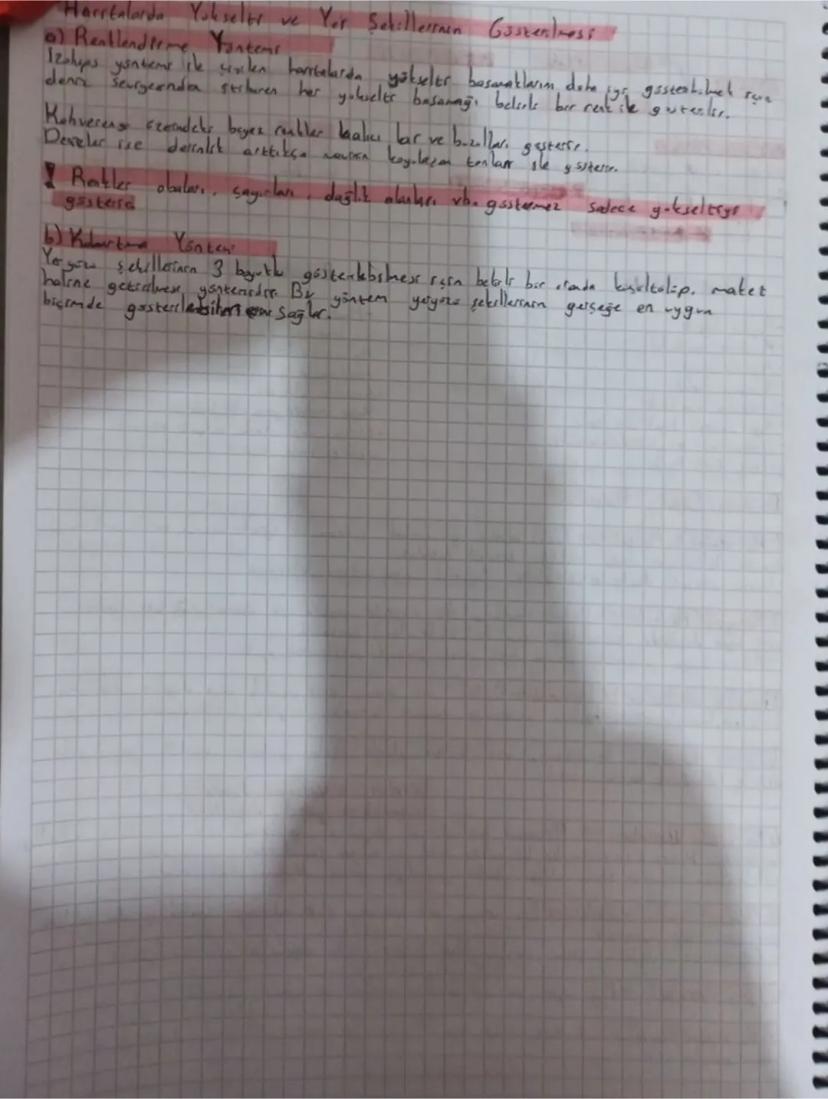 Haritalarda Yükselti ve Yer Şekillerinin Gösterilmesi
a) Renklendirme Yöntemi
İzohips yöntemi ile çizilen haritalarda yükselti basamaklarını daha iyi gösterebilmek için
deniz seviyesinden itibaren her yükselti basamağı belirli bir renk ile gösterilir.
Kahverengi üzerindeki beyaz renkler kalıcı kar ve buzulları gösterir.
Denizler ise derinlik arttıkça mavinin koyulaşan tonları ile gösterir.
! Renkler ovaları, dağlık alanları vb. göstermez sadece yükseltiyi
gösterir
b) Kabartma Yöntemi
Yeryüzü şekillerinin 3 boyutlu gösterilebilmesi için belirli bir oranda küçültülüp, maket
haline getirilmesi yöntemidir. Bu yöntem yeryüzü şekillerinin gerçeğe en uygun
biçimde sağlar.